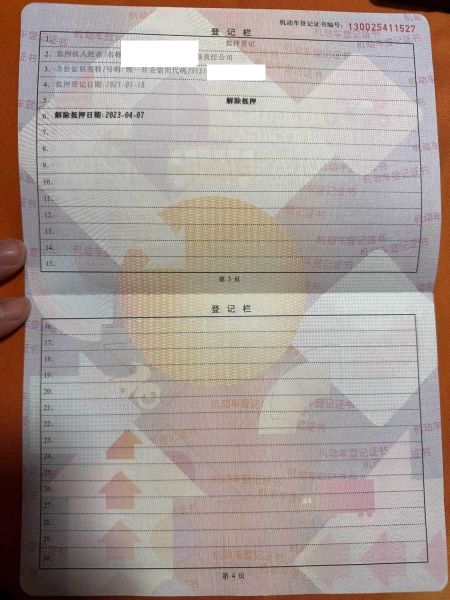 机动车登记证书编号: 130025411527
登 记 栏
1. 抵押登记
2. 抵押权人姓名/名称 责任公司
3. 身份证明名称/号码:统一社会信用代码
4. 抵押登记日期:2021-01-18
5. 解除抵押
6. 解除抵押日期:2023-04-07
7.
8.
9.
10.
11.
12.
13.
14.
15.
第 3 页
登 记 栏
16.
17.
18.
19.
20.
21.
22.
23.
24.
25.
26.
27.
28.
29.
30.
第 4 页